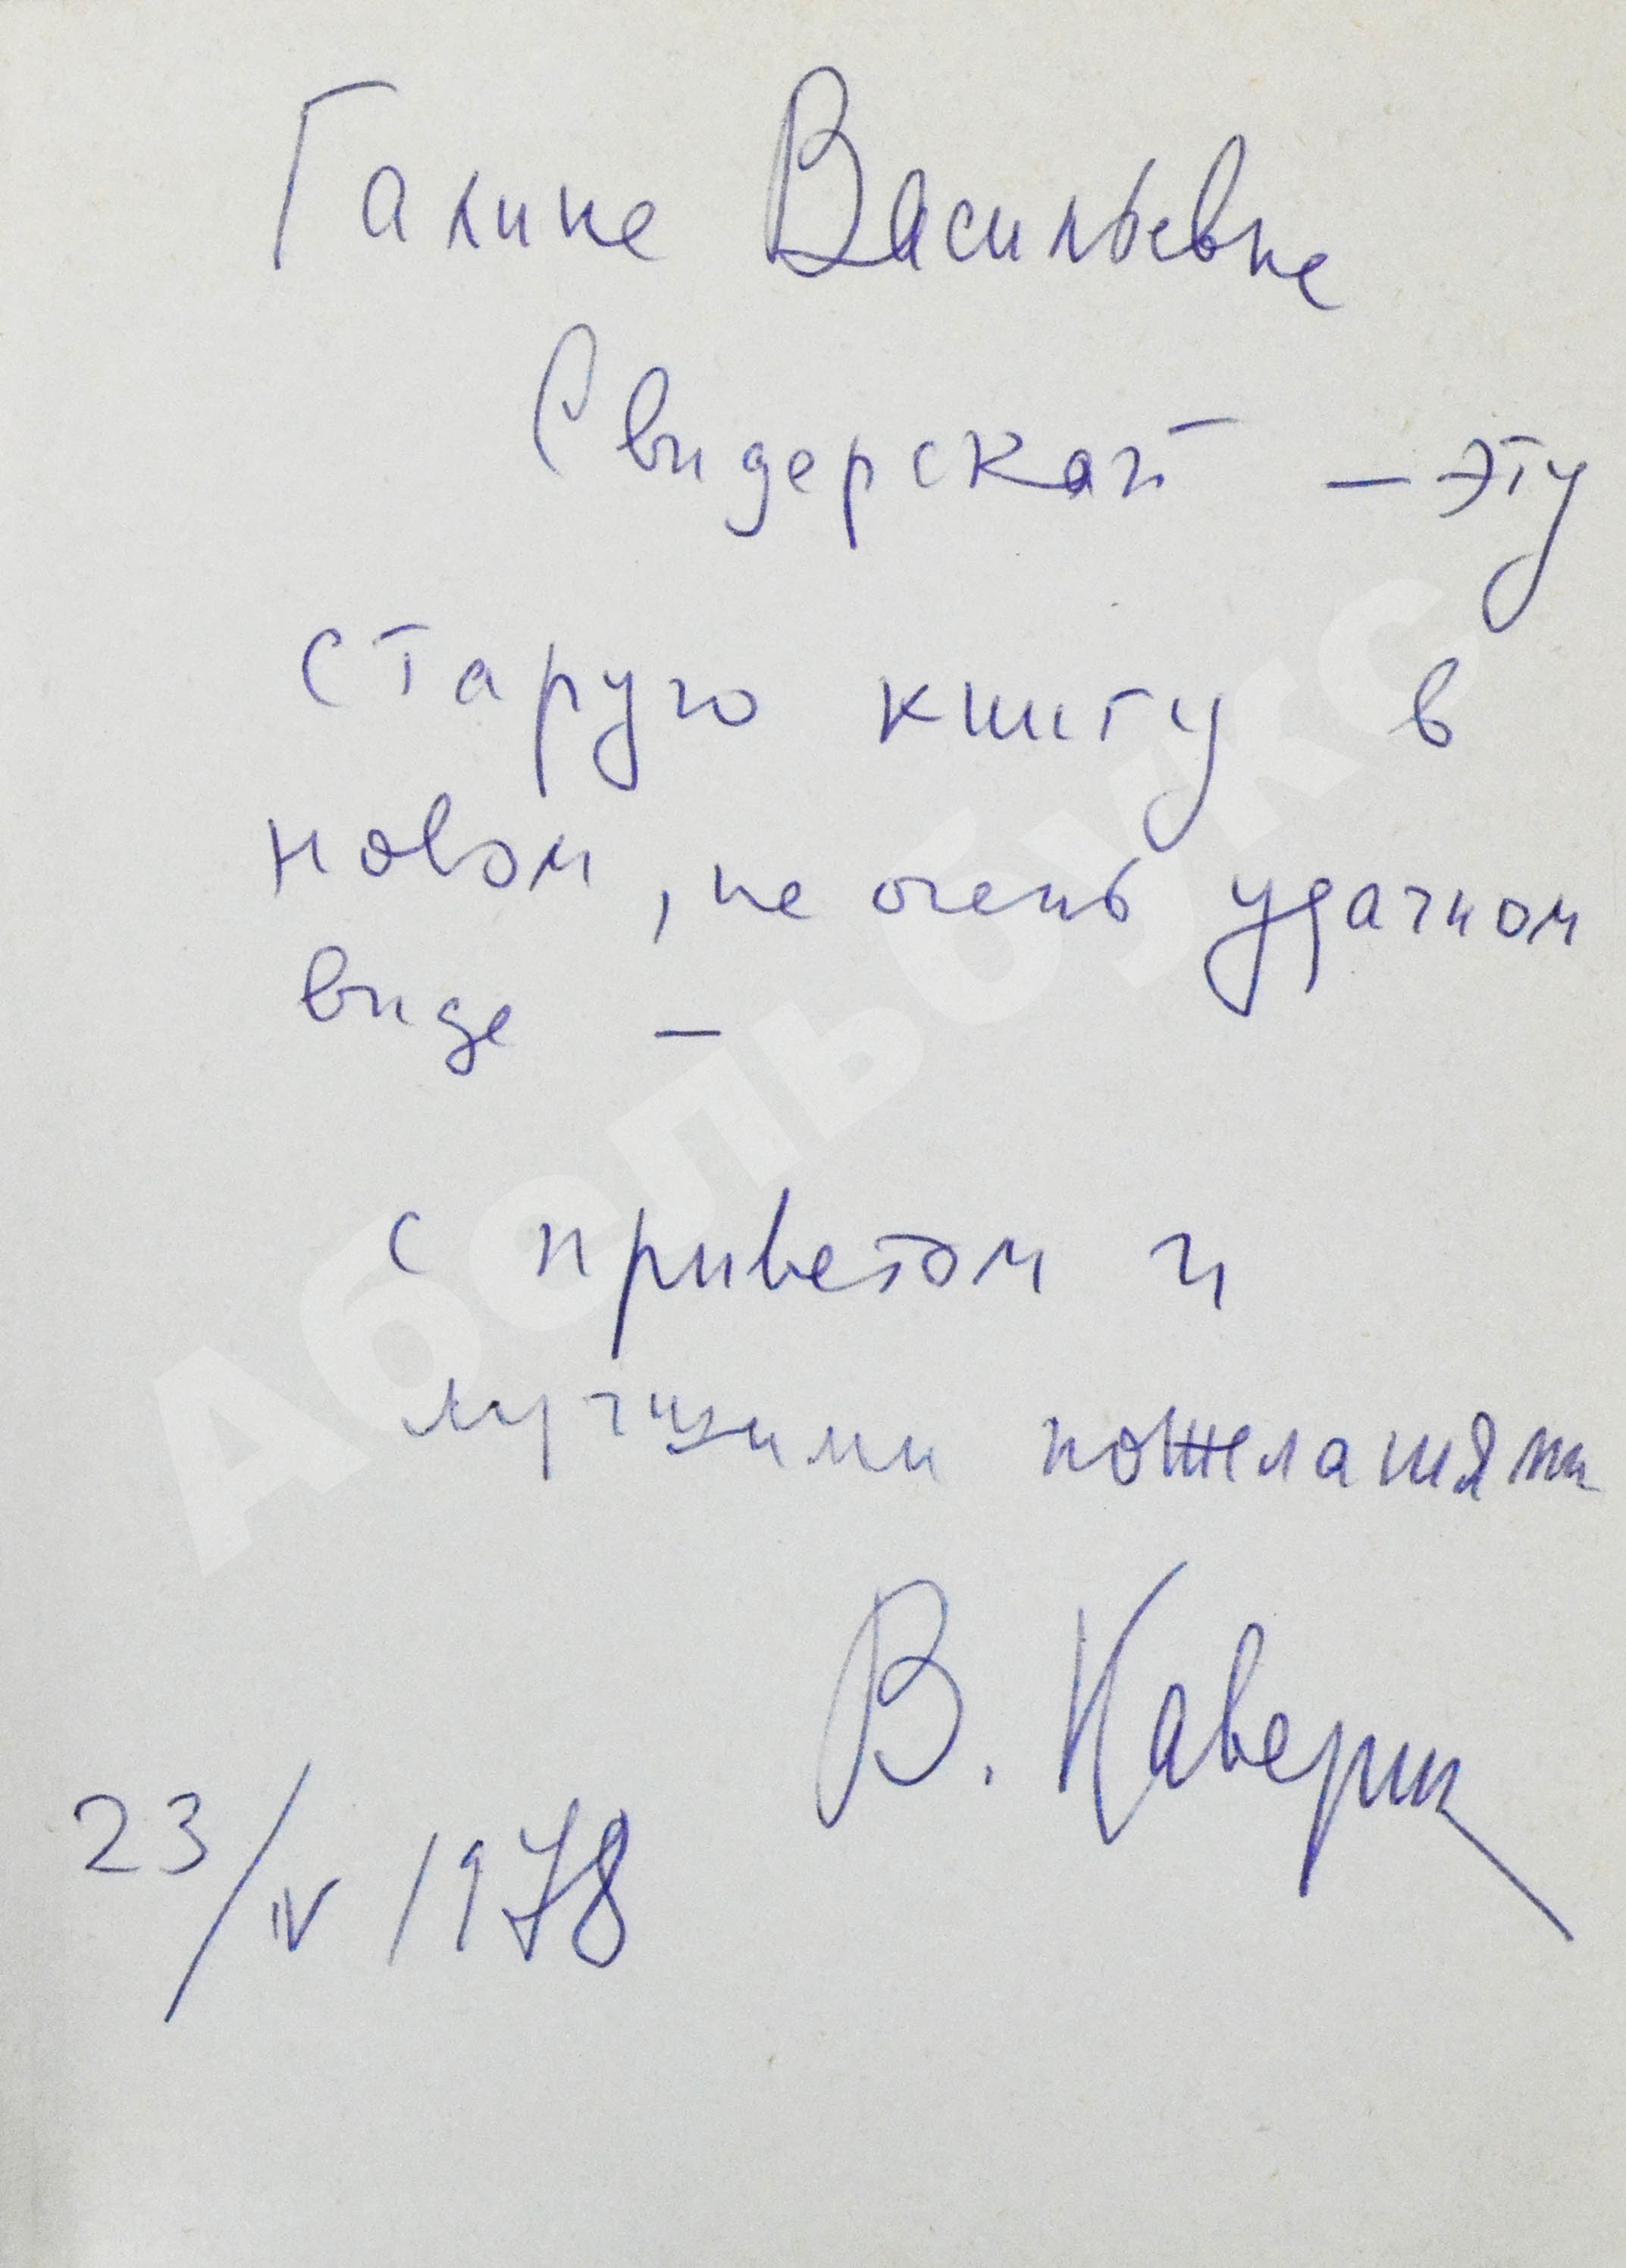 Галине Васильевне
Свидерской – эту
старую книгу в
новом, не очень удачном
виде –
с приветом и
лучшими пожеланиями
В. Каверин
23/IV 1978
Абельбукс